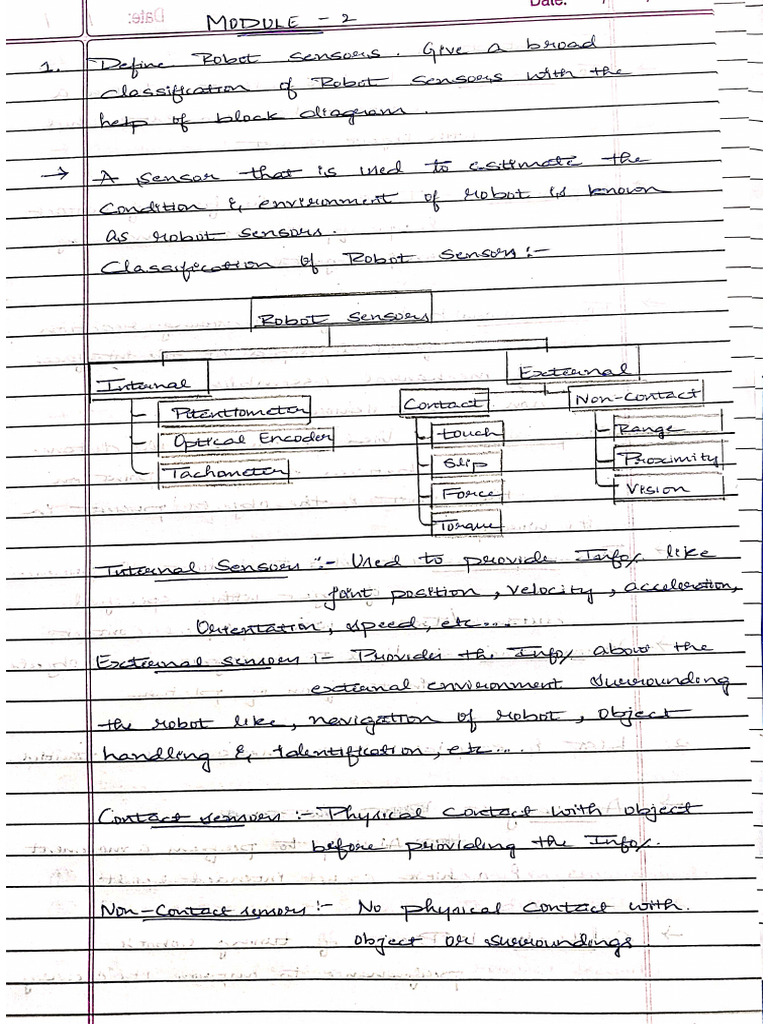 Date:
MODULE - 2
1. Define Robot sensors. Give a broad
classification of Robot sensors with the
help of block diagram.
→ A sensor that is used to estimate the
condition & environment of robot is known
as robot sensors.
Classification of Robot Sensors:-
Robot Sensors
Internal
External
Pitentiometer
Optical Encoder
Tachometer
Contact
Non-Contact
touch
Slip
Force
Torque
Range
Proximity
Vision
Internal Sensors :- Used to provide Info/. like
joint position, velocity, acceleration,
Orientation, speed, etc....
External sensors :- Provides the Info/. about the
external environment surrounding
the robot like, navigation of robot, object
handling & Identification, etc....
Contact sensors :- Physical Contact with object
before providing the Info/.
Non-Contact sensors :- No physical contact with.
object or surroundings.